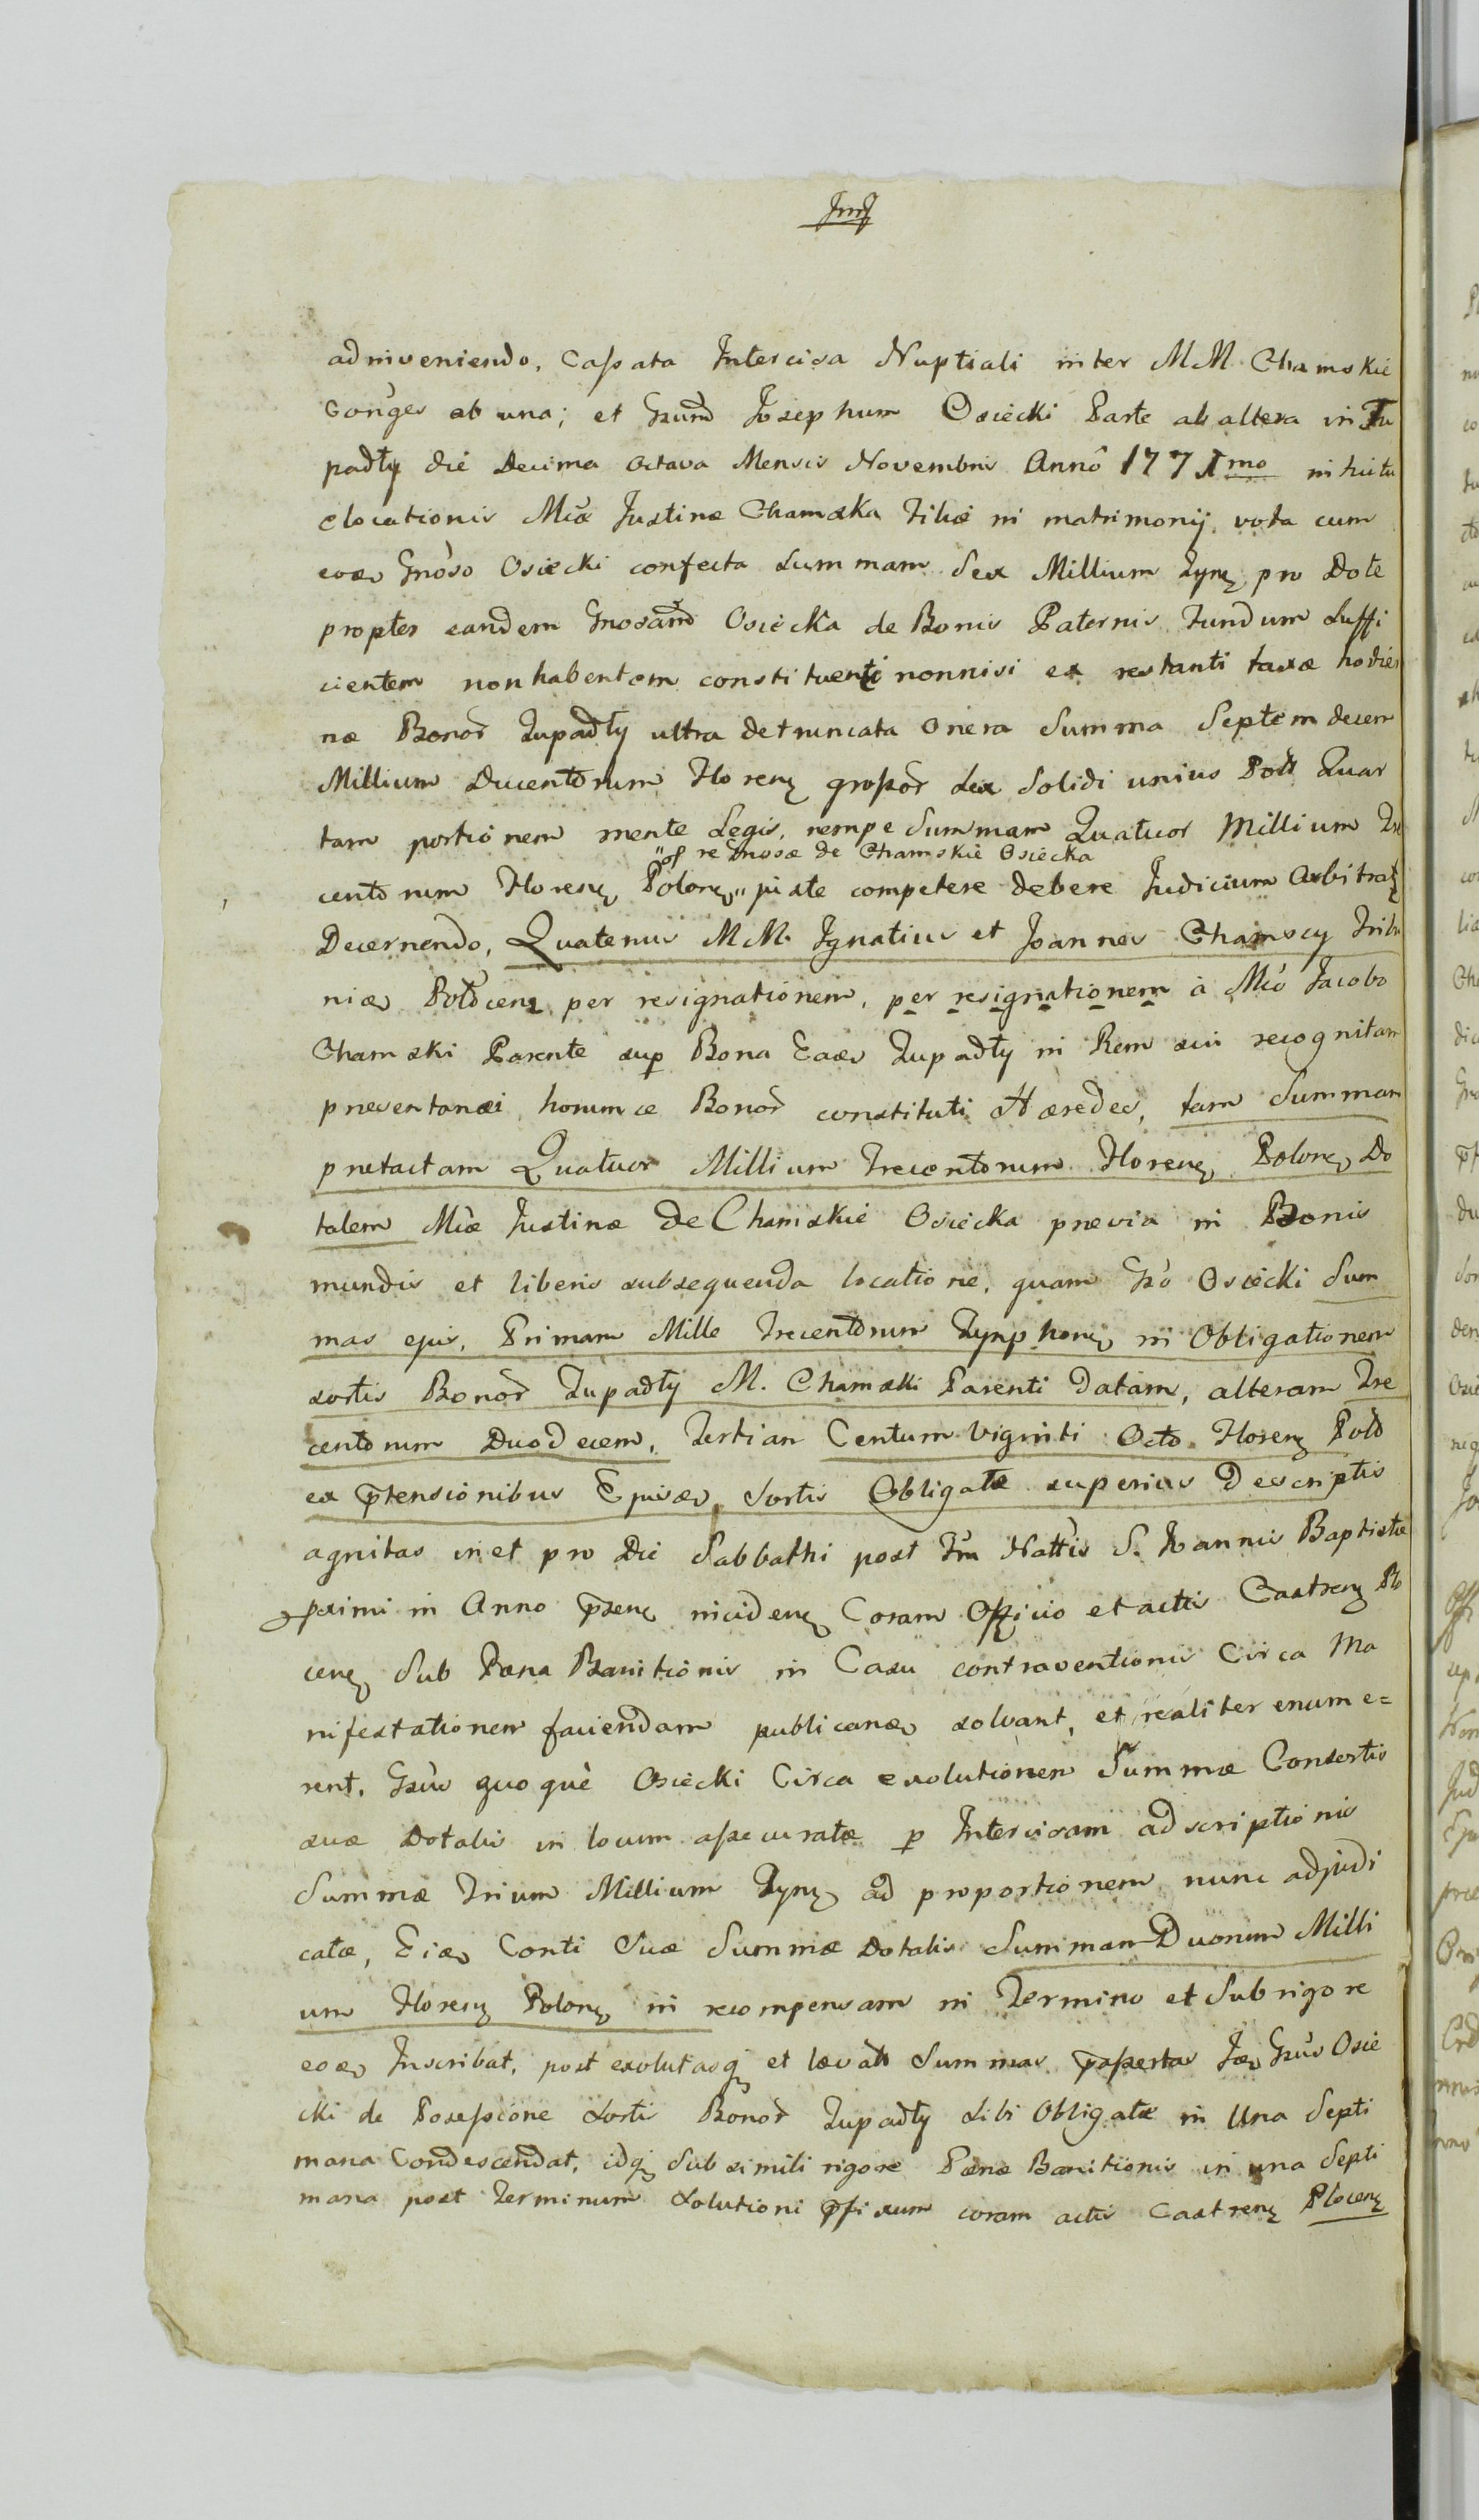 adinveniendo, Cassata Intercisa Nuptiali inter M M. Chamskie
Cońges ab una; et Gsum̃ Josephum Osiecki Parte ab altera in Tu
padły die Decima Octava Mensis Novembris Annô 1771mo intuitu
elocationis Mcæ Justinæ Chamska Filiæ in matrimonij vota cum
eodem Gnoso Osiecki confecta Summam Sex Millium Tynf pro Dote
propter eandem Gnosam̃ Osiecka de Bonis Paternis Fundum Suffi
cientem non habentem constituenti nonnisi ex restanti taxæ hodier
næ Bonor̃ Tupadły ultra detruncata Onera Summa Septemdecem
Millium Ducentorum Floren grossor̃ Sex Solidi unius Poll Quar
tam portionem mente Legis, nempe Summam Quatuor Millium Tre
re Gnosæ de Chamskie Osiecka
centorum Floren Polon juste competere debere Judicium Arbitral
Decernendo, Quatenus M M. Ignatius et Joannes Chamscy Tribu
niæ Poloceñ per resignationem, per resignationem à Mco Jacobo
Chamski Parente sup Bona Eadem Tupadły in Rem sui recognitam
presentanei horumce Bonor̃ constituti Hæredes, tam Summam
pretactam Quatuor Millium Trecentorum Floren Polon Do
talem Mcæ Justinæ de Chamskie Osiecka previa in Bonis
mundis et liberis subsequenda locatione, quam Gso Osiecki Sum
mas ejus, Primam Mille Trecentorum Tynphon in Obligationem
sortis Bonor̃ Tupadły M. Chamski Parenti Datam, alteram Tre
centorum Duodecem, Tertian Centum Viginti Octo Floren Pold
ex p̃tensionibus Ejusdem Sortis Obligatæ superius Descriptis
agnitas in et pro Die Sabbathi post Fm̃ Nattis S. Joannis Baptistæ
proximi in Anno p̃sen inciden Coram Officio et actis Castren Plo
cen Sub Pæna Banitionis in Casu contraventionis Circa Ma
nifestationem faciendam publicandæ solvant, et realiter enume=
rent. Gsus quoquè Osiecki Circa exolutionem Summæ Consortis
suæ Dotalis in locum assecuratæ p Intercisam adscriptionis
Summæ Trium Millium Tynf ad proportionem nunc adjudi
catæ, Eidem Conti Suæ Summæ Dotalis Summam Duorum Milli
um Floren Polon in recompensam in Termino et Sub rigore
eodem Inscribat, post exolutasq et levatas Summas p̃assertas Idem Gsus Osie
cki de Possessione Sortis Bonor̃ Tupadły Sibi Obligatæ in Una Septi
mana Condescendat, idq Sub simili rigore Pænæ Banitionis in una Septi
mana post Terminum Solutioni p̃fixum coram actis Castren Plocen